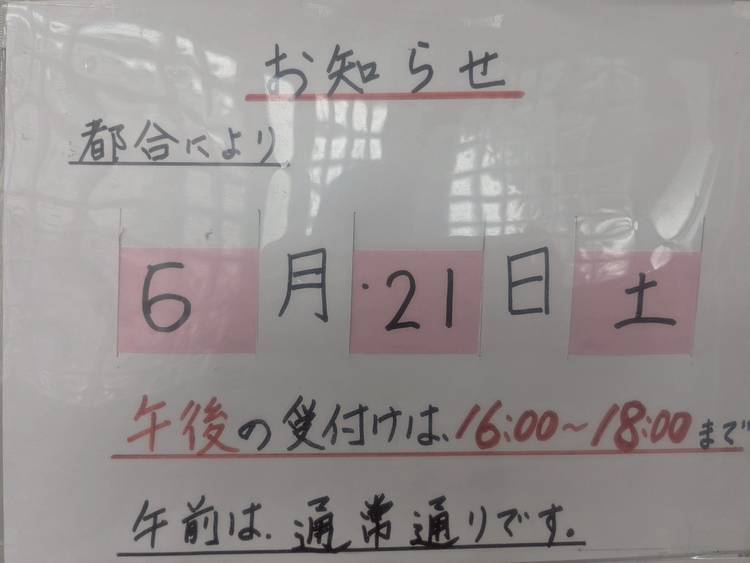 お知らせ
都合により
6月21日土
午後の受付けは、16:00～18:00まで
午前は、通常通りです。